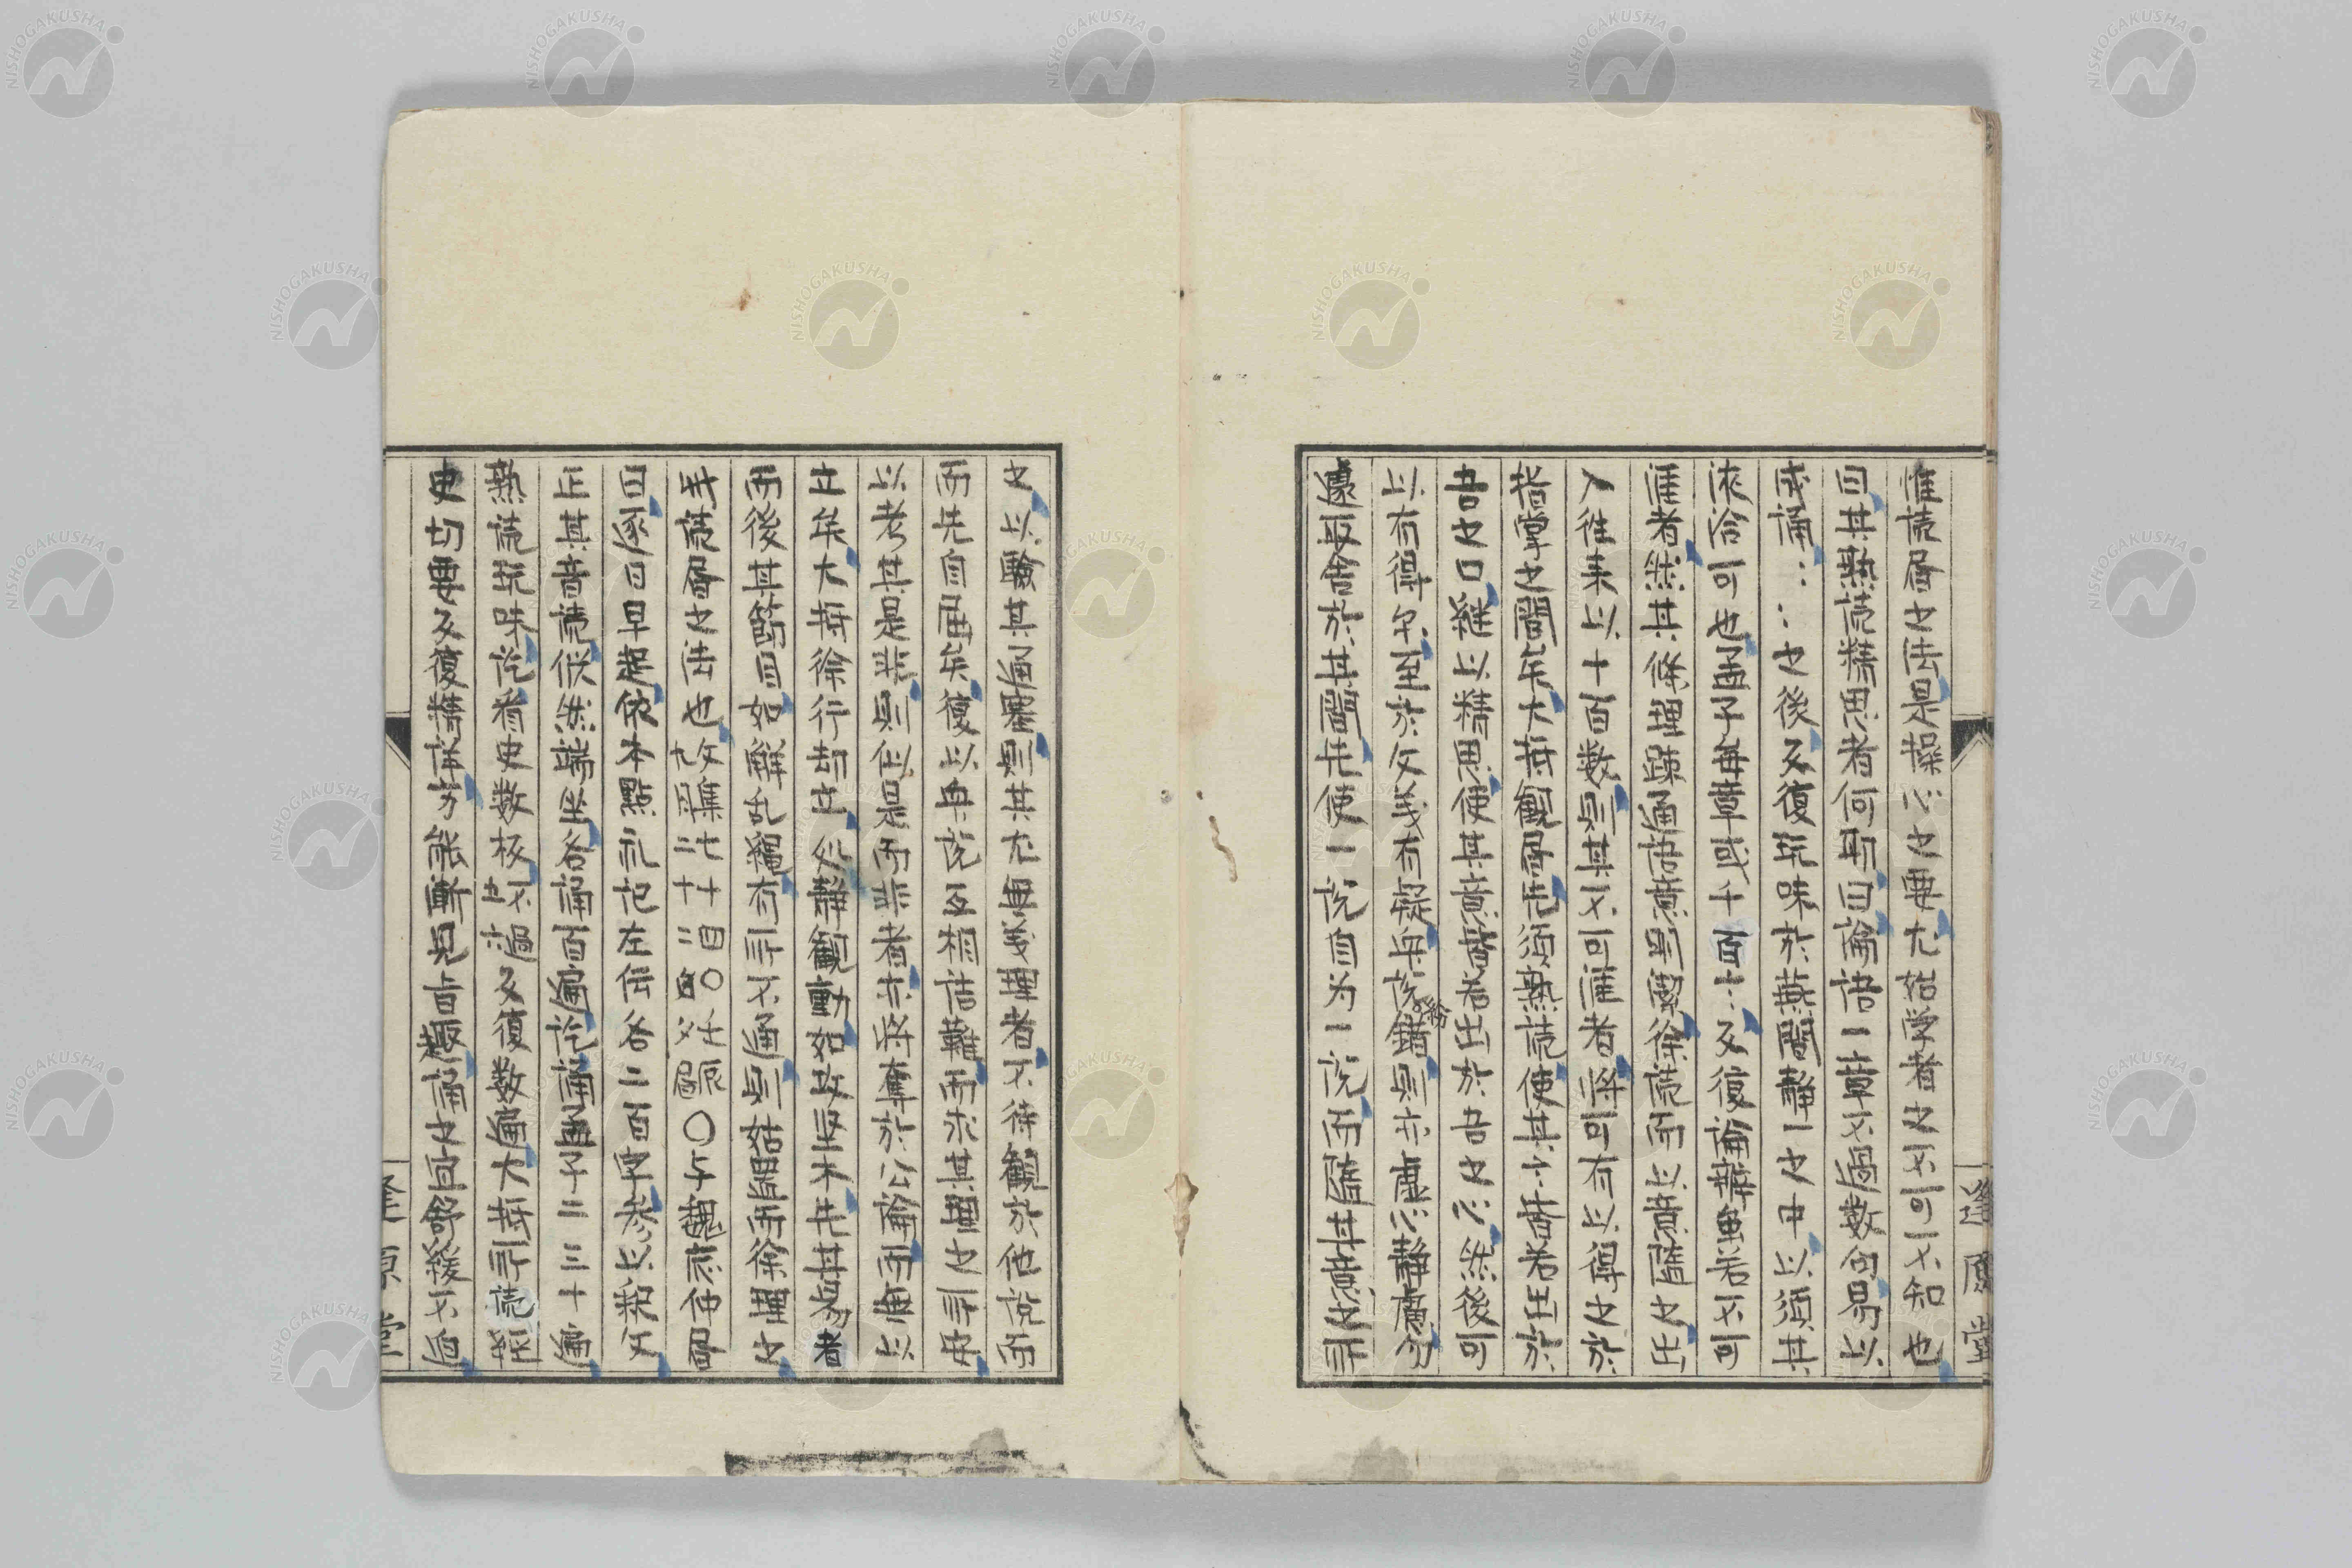 惟読書之法是操心之要尤始学者之不可不知也
曰其熟読精思者何耶曰論語一章不過数句易以
成誦〻〻之後反復玩味於燕間静一之中以須其
浹洽可也孟子毎章或千百言〻反復論辨虽若不可
涯者然其條理疎通語意明潔徐読而以意隨之出
入往来以十百数則其不可涯者将可有以得之於
指掌之間矣大抵観書先須熟読使其言皆若出於
吾之口継以精思使其意皆若出於吾之心然後可
以有得尓至於文義有疑衆説紛錯則亦虚心静慮勿
遽取舎於其間先使一説自为一説而隨其意之所
之以験其通塞則其尤無義理者不待観於他説而
而先自屈矣復以衆説互相詰難而求其理之所安
以考其是非則似是而非者亦将奪於公論而無以
立矣大抵徐行却立処静観動如攻堅木先其易者
而後其節目如解乱縄有所不通則姑置而徐理之
此読書之法也
〇与魏応仲書
曰逐日早起依本點礼記左伝各二百字参以釈文
正其音読俨然端坐各誦百遍訖誦孟子二三十遍
熟読玩味訖看史数板不過反復数遍大抵所読経
史切要反復精詳方能漸見旨趣誦之宜舒緩不迫
逢原堂
逢原堂
NISHOGAKUSHA